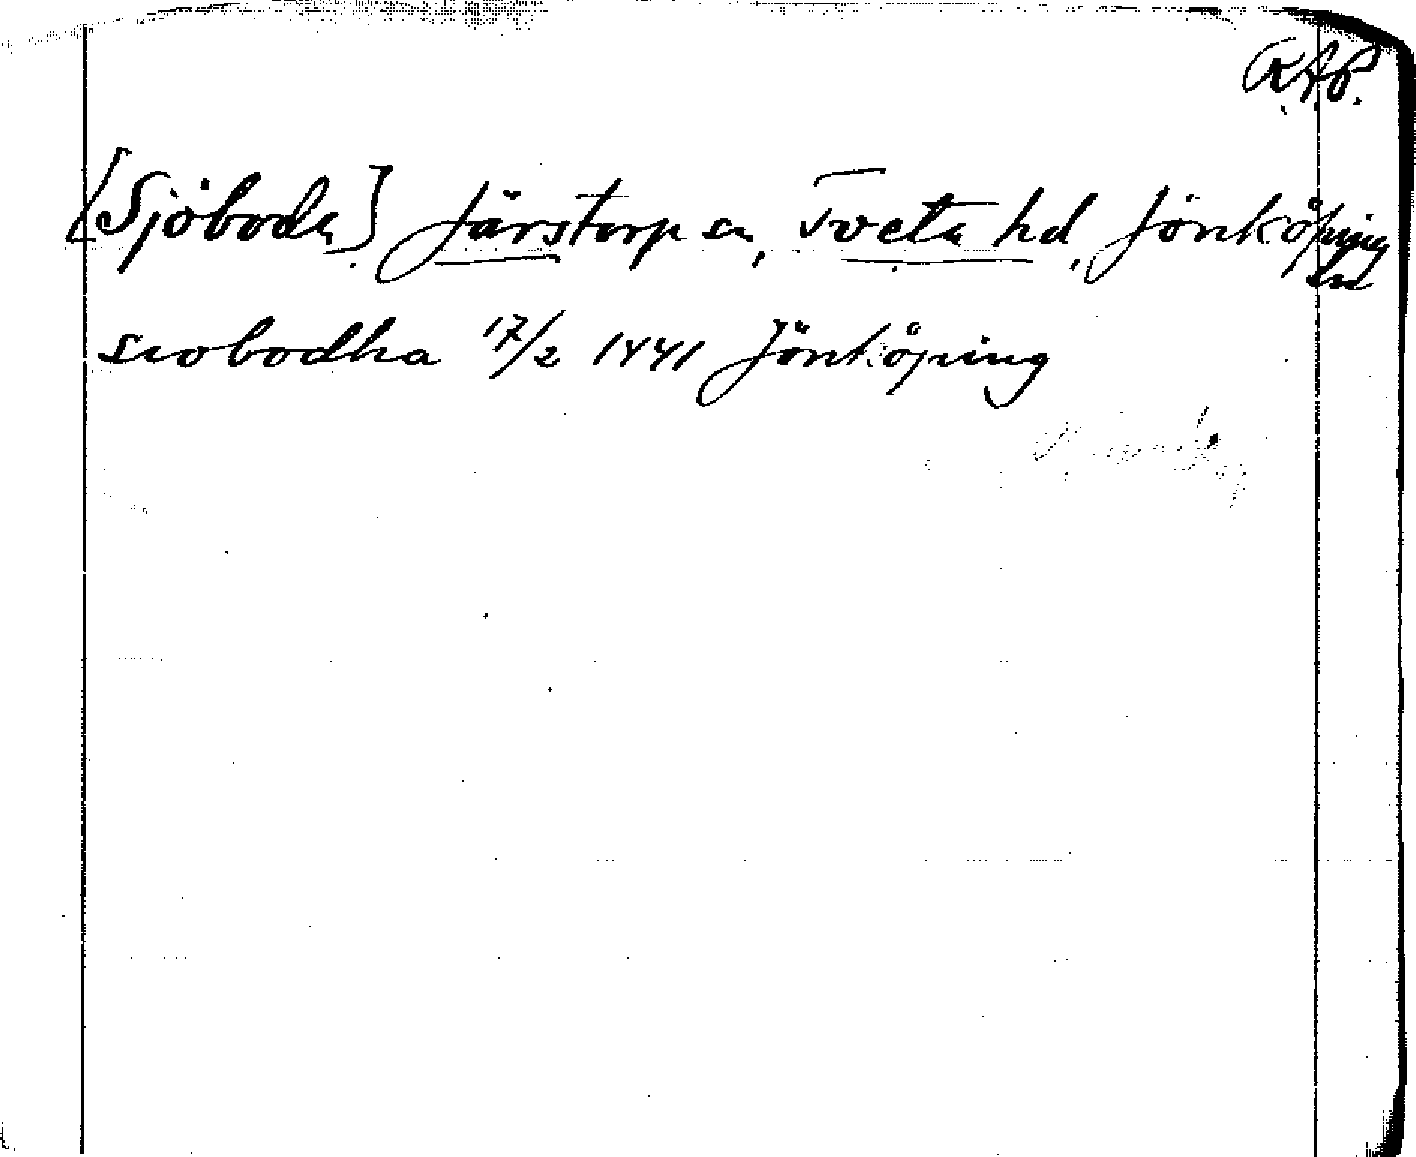 RAP.
[Sjöboda] Järstorp sn, Tveta hd, Jönköping
ln
siobodha 17/2 1441 Jönköping